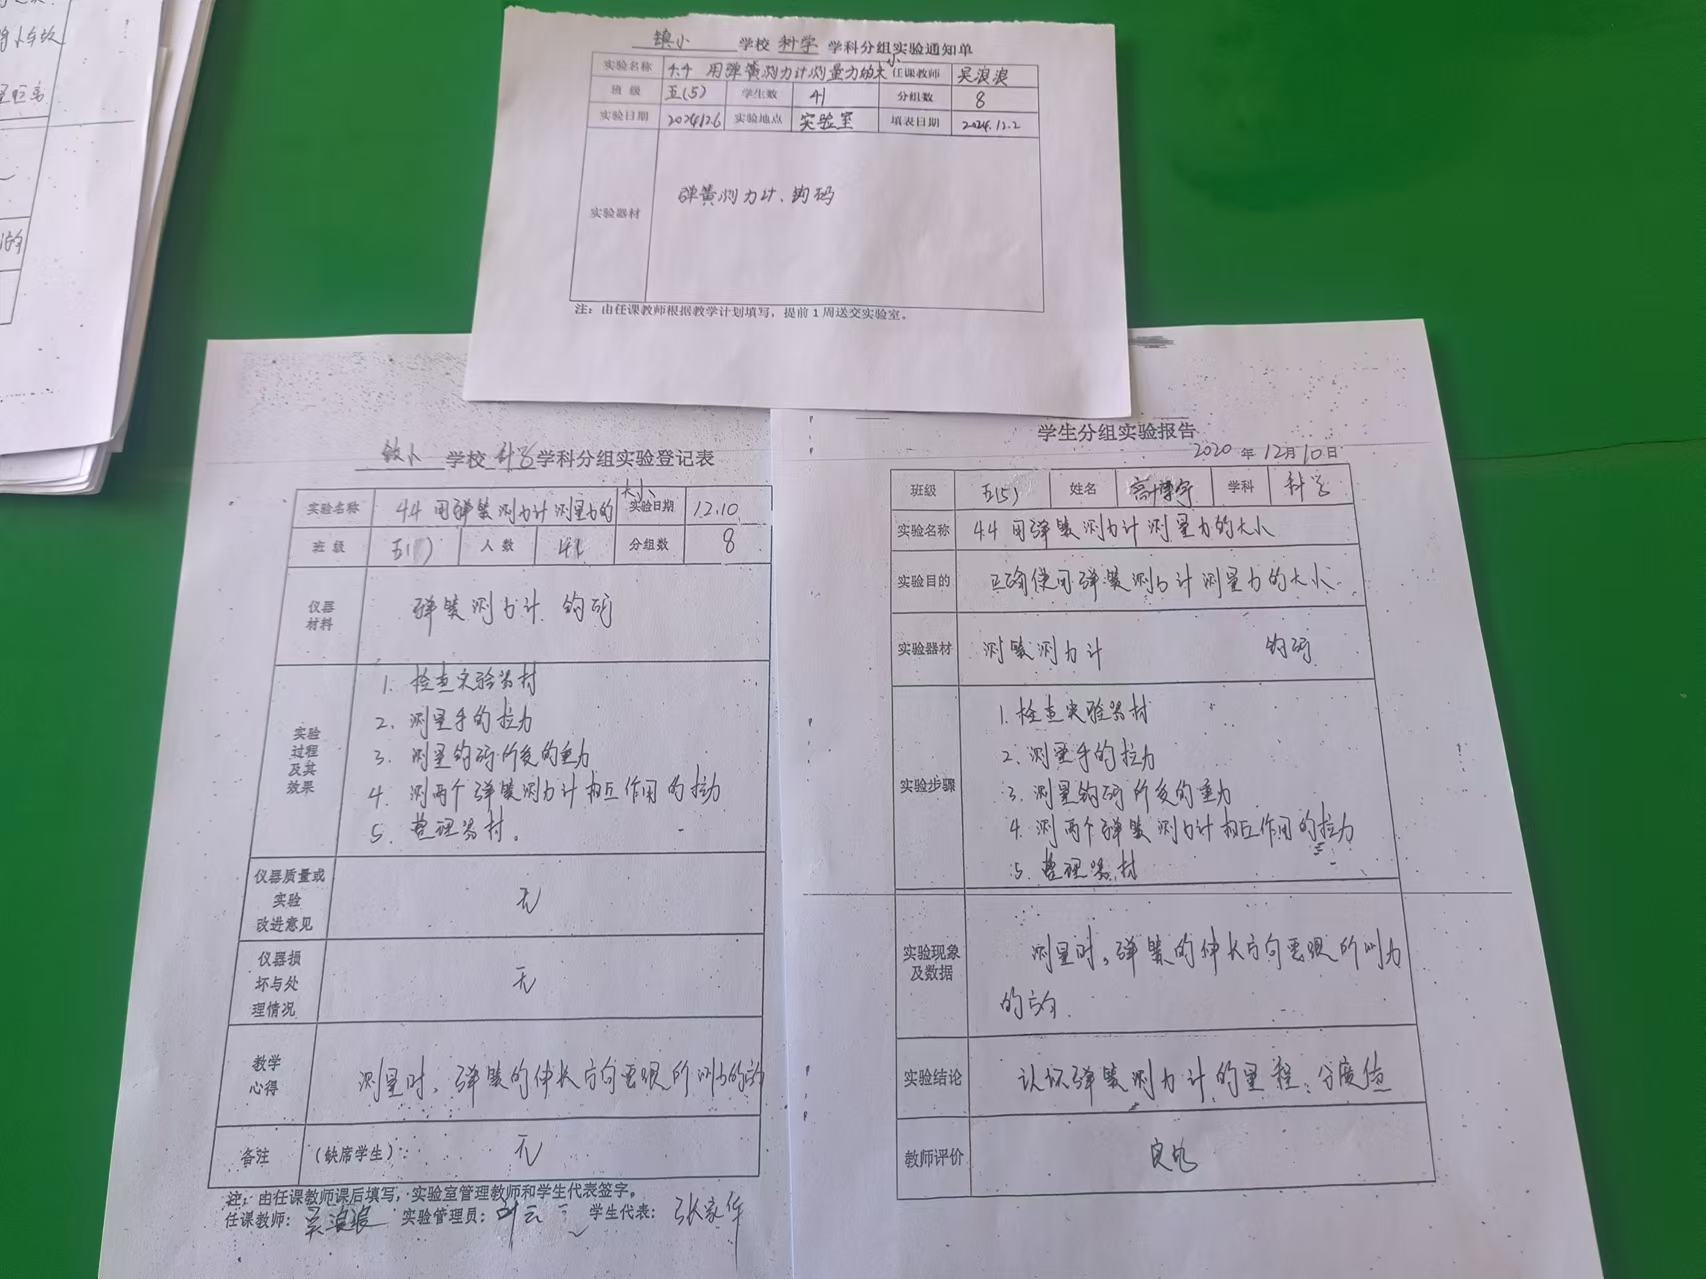 镇小 学校 科学 学科分组实验通知单
实验名称 4.4 用弹簧测力计测量力的大小 任课教师 吴浪浪
班 级 五(5) 学生数 41 分组数 8
实验日期 2024.12.6 实验地点 实验室 填表日期 2024.12.2
实验器材 弹簧测力计、钩码
注：由任课教师根据教学计划填写，提前1周送交实验室。
镇小 学校 科学 学科分组实验登记表
实验名称 4.4 用弹簧测力计测量力的大小 实验日期 12.10
班 级 五( ) 人 数 41 分组数 8
仪器
材料
弹簧测力计 钩码
实验
过程
及其
效果
1. 检查实验器材
2. 测量手的拉力
3. 测量钩码所受的重力
4. 测两个弹簧测力计相互作用的拉力
5. 整理器材。
仪器质量或
实验
改进意见
无
仪器损
坏与处
理情况
无
教学
心得
测量时，弹簧的伸长方向要跟所测力的方
备注 (缺席学生)： 无
注：由任课教师课后填写，实验室管理教师和学生代表签字。
任课教师：吴浪浪 实验管理员：叶云 学生代表：张家华
学生分组实验报告
2020 年 12月10日
班级 五(5) 姓名 高博宇 学科 科学
实验名称 4.4 用弹簧测力计测量力的大小
实验目的 正确使用弹簧测力计测量力的大小
实验器材 测簧测力计 钩码
实验步骤
1. 检查实验器材
2. 测量手的拉力
3. 测量钩码所受的重力
4. 测两个弹簧测力计相互作用的拉力
5. 整理器材
实验现象
及数据
测量时，弹簧的伸长方向要跟所测力
的方向.
实验结论 认识弹簧测力计的量程、分度值
教师评价 良好